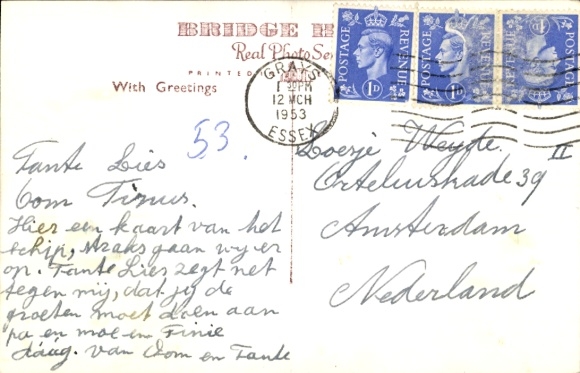 BRIDGE H
Real Photo Se
PRINTED
With Greetings
GRAYS
1 30 PM
12 MCH
1953
ESSEX
POSTAGE REVENUE
1D
POSTAGE REVENUE
1D
POSTAGE REVENUE
1D
53.
Tante Lies
Oom Tinus.
Hier een kaart van het
schip, straks gaan wij er
op. Tante Lies zegt net
tegen mij, dat jij de
groeten moet doen aan
pa en moe en Finie
dááág. van Oom en Tante
Loesje Weyde.
II
Orteliuskade 39
Amsterdam
Nederland